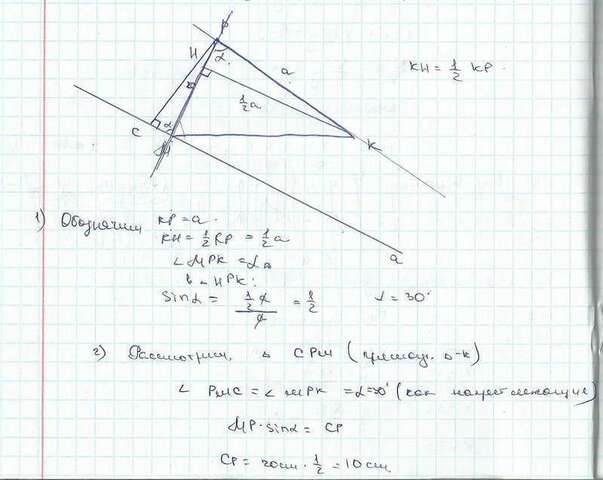 P
H
α
a
KH = 1/2 KP
1/2 a
α
C
M
K
a
1) Обозначим KP = a
KH = 1/2 KP = 1/2 a
∠ MPK = α
в △ HPK:
sinα = (1/2 a)/a = 1/2 α = 30°
2) Рассмотрим △ CPM (прямоуг. △-к)
∠ PMC = ∠ MPK = α = 30° (как накрест лежащие)
MP · sinα = CP
CP = 20cm · 1/2 = 10 cm.